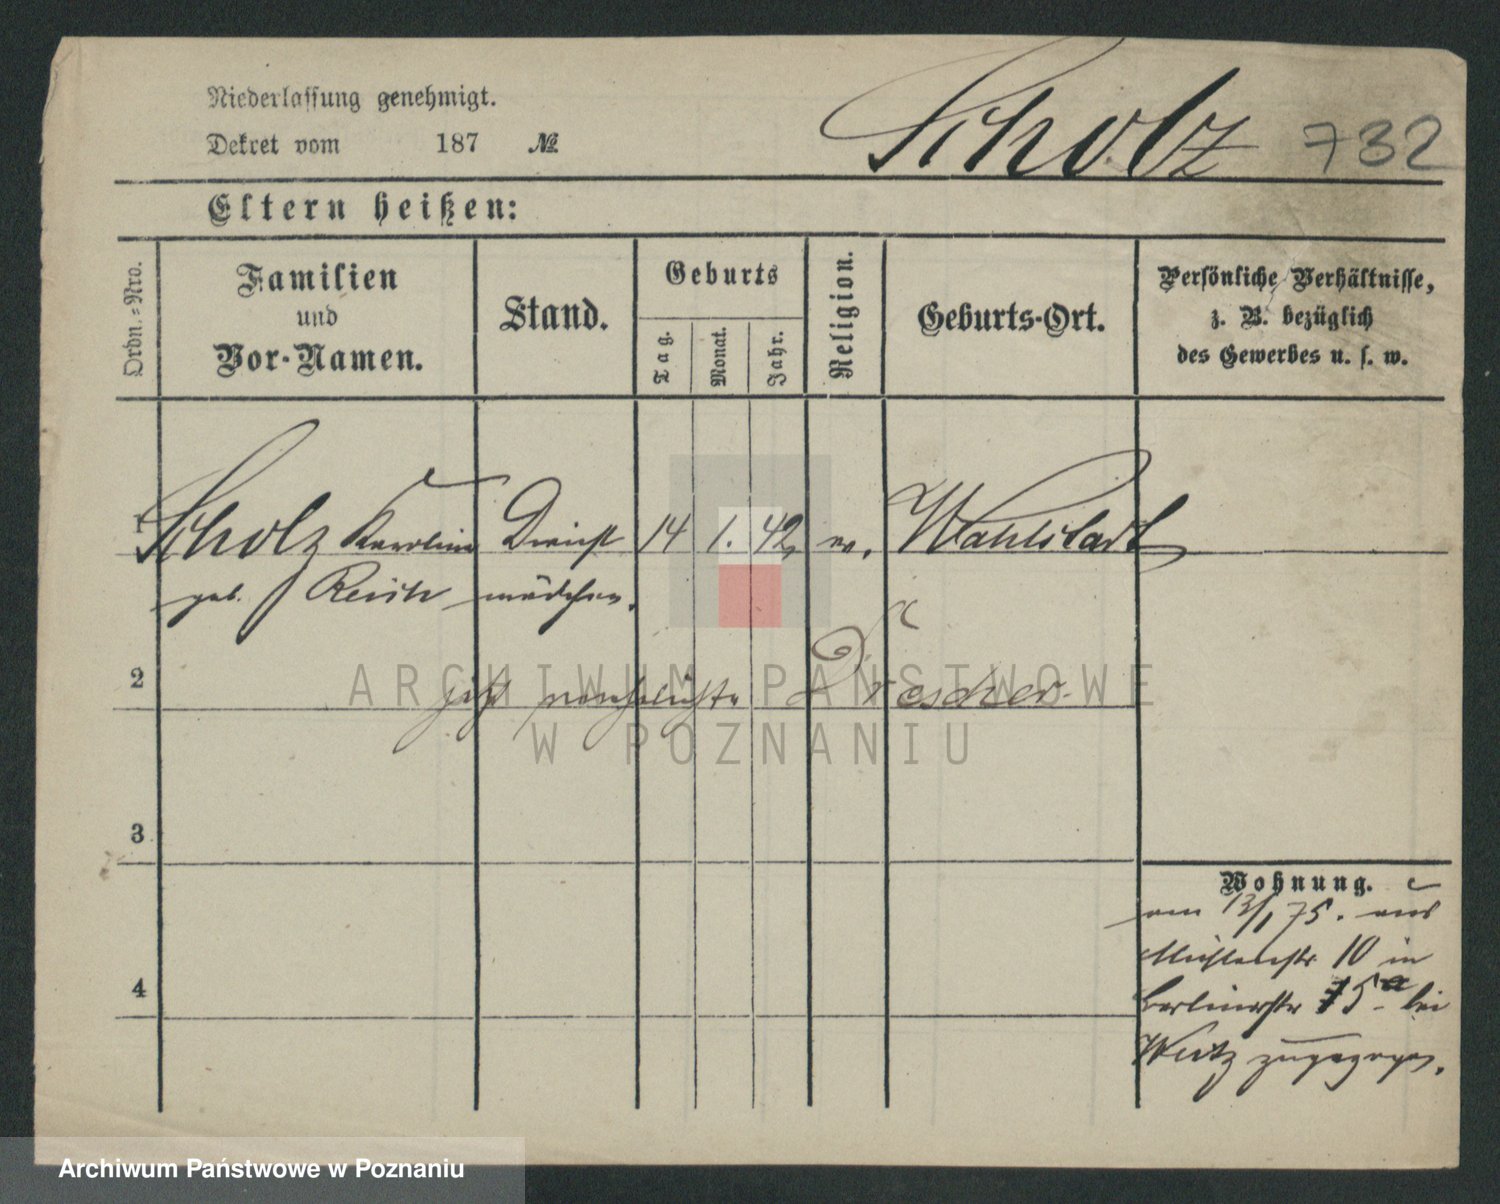 Niederlassung genehmigt.
Scholz 732
Dekret vom 187 №
Eltern heißen:
Ordn.-Nro.
Familien
und
Vor-Namen.
Stand.
Geburts
Tag.
Monat.
Jahr.
Religion.
Geburts-Ort.
Persönliche Verhältnisse,
z. B. bezüglich
des Gewerbes u. s. w.
1 Scholz Karoline Dienst 14 1. 42 ev. Wahlstadt
geb. mädchen.
2 jetzt verehelichte Drescher
ARCHIWUM PAŃSTWOWE
W POZNANIU
3
Wohnung.
am 13/1 75. aus
Mühlenstr 10 in
4
Berlinerstr 15a bei
zugezogen.
Archiwum Państwowe w Poznaniu